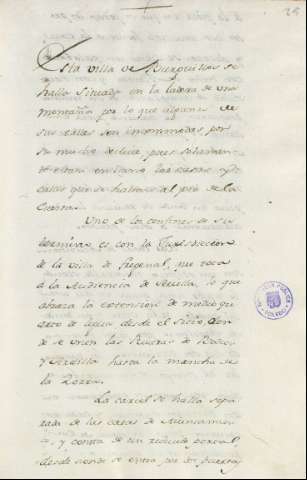 25
Esta villa de Burguillos se
halla situada en la ladera de una
montaña por lo que algunas de
sus calles son incommodas por
su mucho declive pues solamen-
te estan en llano las casas y
calles que se hallan al pie de la
Sierra.
Uno de los confines de su
termino es con la Jurisdiccion
de la villa de Fregenal, que toca
a la Audiencia de Sevilla, lo que
abraza la extension de medio quar-
to de legua desde el sitio don-
de se unen las Riveras de
y Ardilla hasta la mancha de
la Zorra.
La carcel se halla sepa-
rada de las casas de Ayuntamien-
to, y consta de un reducido portal
desde donde se entra por dos puertas